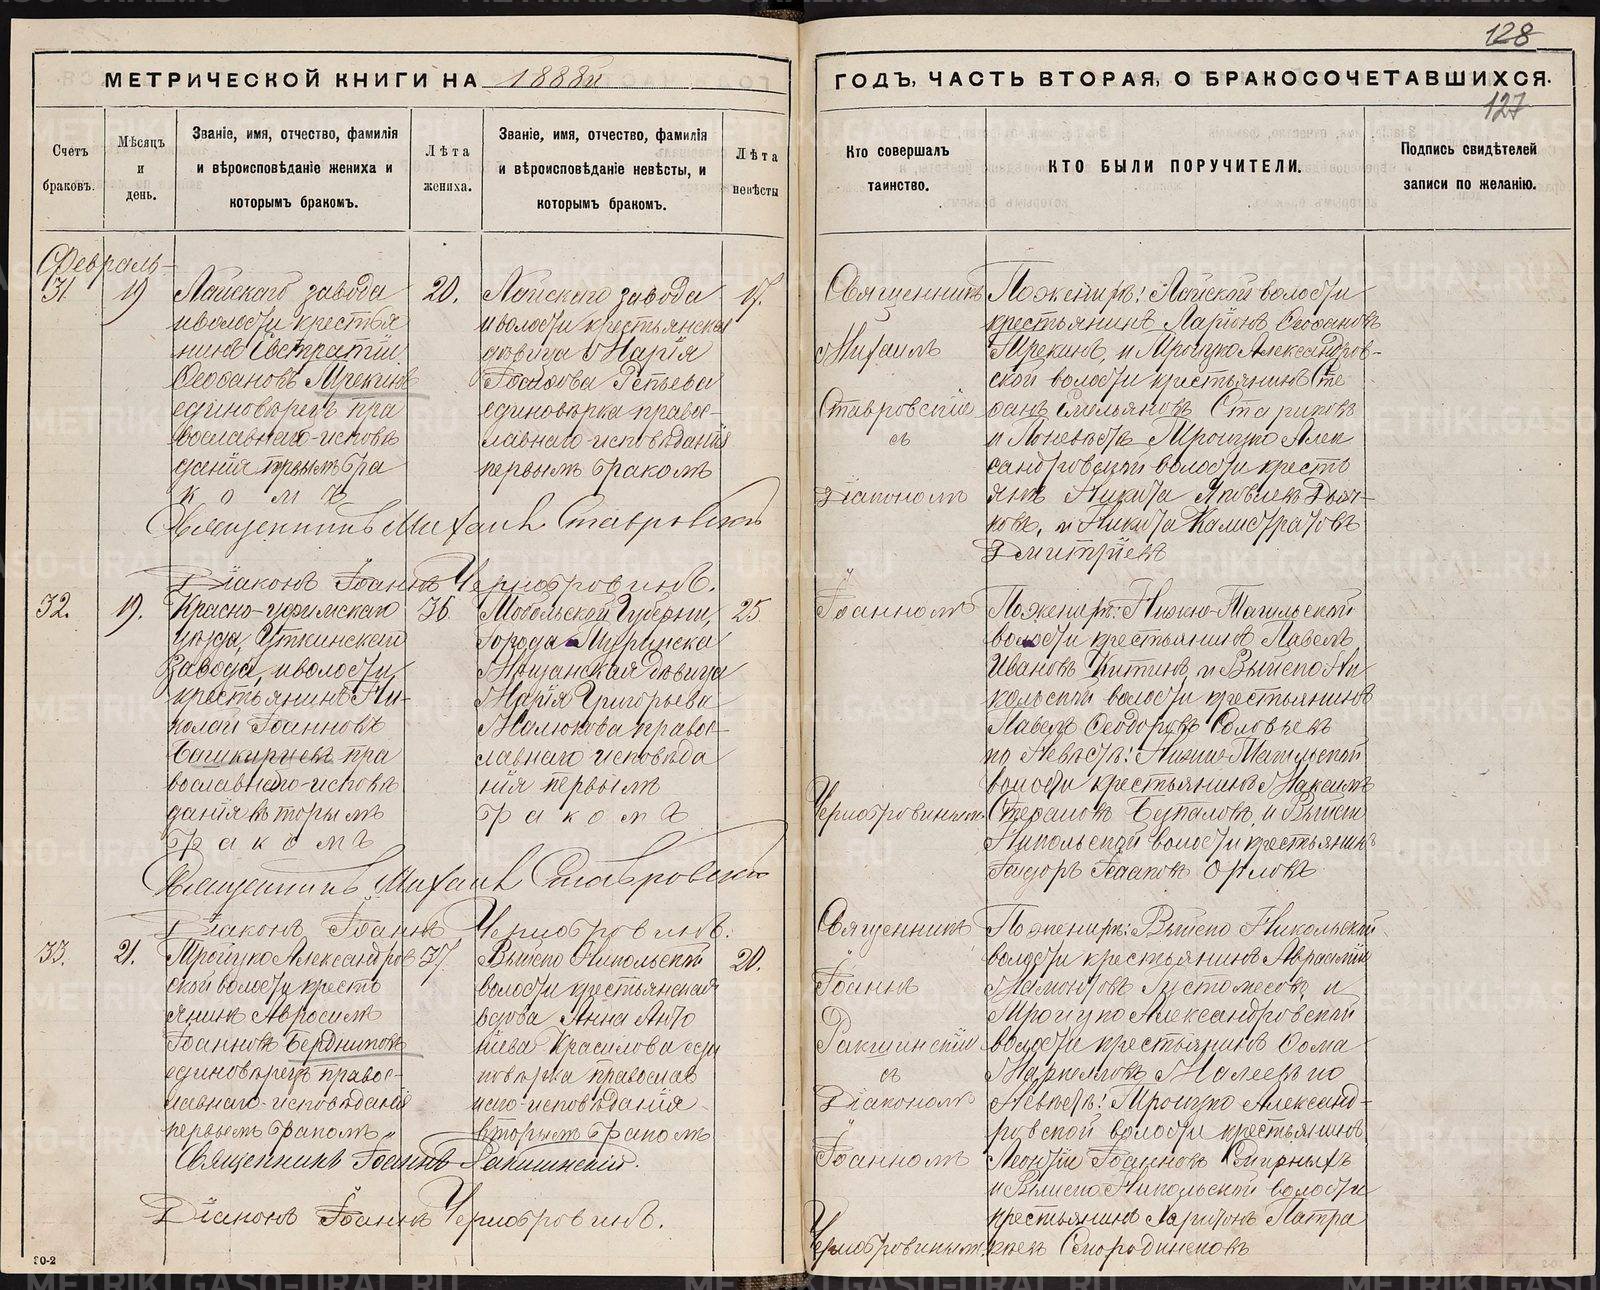 128
МЕТРИЧЕСКОЙ КНИГИ НА 1888й
ГОДЪ, ЧАСТЬ ВТОРАЯ, О БРАКОСОЧЕТАВШИХСЯ.
127
Счетъ
браковъ.
Мѣсяцъ
и
день.
Званіе, имя, отчество, фамилія
и вѣроисповѣданіе жениха и
которымъ бракомъ.
Лѣта
жениха.
Званіе, имя, отчество, фамилія
и вѣроисповѣданіе невѣсты, и
которымъ бракомъ.
Лѣта
невѣсты
Кто совершалъ
таинство.
КТО БЫЛИ ПОРУЧИТЕЛИ.
Подпись свидѣтелей
записи по желанію.
Февраль
31.
19
Лайскаго завода
и волости крестья
нинъ Евстратій
Ѳеофановъ Мрекинъ
единовѣрецъ пра
вославнаго исповѣ
данія первымъ бра
комъ
20.
Лайскаго завода
и волости крестьянская
дѣвица Марія
единовѣрка правос-
лавнаго исповѣданія
первымъ бракомъ
17.
Священникъ
Михаилъ
Ставровскій
съ
Діакономъ
По женихѣ: Лайской волости
крестьянинъ Ларіонъ Ѳеофановъ
Мрекинъ, и Троицко Александров-
ской волости крестьянинъ Сте
фанъ Емельяновъ Стариковъ
и по невѣстѣ Троицко Алек
сандровской волости кресть
янъ Никита Яковлевъ Дьяч-
ковъ, и Никита Калистратовъ
Дмитріевъ
Священникъ Михаилъ Ставровскій
Діаконъ Іоаннъ Чернобровинъ.
32.
19.
Красно-уфимскаго
уѣзда, Уткинскаго
завода, и волости
крестьянинъ Ни-
колай Іоанновъ
Башкирцевъ пра
вославнаго исповѣ
данія вторымъ
бракомъ
36.
Тобольской Губерніи,
Города Туринска
Мѣщанская дѣвица
Марія Григорьева
правос-
лавнаго исповѣда
нія первымъ
бракомъ
25
Іоанномъ
Чернобровинымъ
По женихѣ: Нижне-Тагильской
волости крестьянинъ Павелъ
Ивановъ Китинъ, и Выйско Ни
кольской волости крестьянинъ
Павелъ Ѳеодоровъ Соловьевъ
по Невѣстѣ: Нижне-Тагильской
волости крестьянинъ Максимъ
Стефановъ и Выйско
Никольской волости крестьянинъ
Исаковъ Орловъ
Священникъ Михаилъ Ставровскій
Діаконъ Іоаннъ Чернобровинъ.
33.
21.
Троицко Александров
ской волости кресть
янинъ Авросимъ
Іоанновъ Бердниковъ
единовѣрецъ правос-
лавнаго исповѣданія
первымъ бракомъ
37.
Выйско Никольской
волости крестьянская
вдова Анна Анто
ніева Красилова еди
новѣрка православ
наго исповѣданія
вторымъ бракомъ
20.
Священникъ
Іоаннъ
Ракшинскій
съ
Діакономъ
Іоанномъ
Чернобровинымъ
По женихѣ: Выйско Никольской
волости крестьянинъ Аврамій
Мамонтовъ Густомесовъ, и
Троицко Александровской
волости крестьянинъ Ѳома
Малеевъ по
Невѣстѣ: Троицко Александ-
ровской волости крестьянинъ
Леонтій Іоанновъ Смирныхъ
и Выйско Никольской волости
крестьянинъ Харитонъ Патра
кѣевъ Смородинсковъ
Священникъ Іоаннъ Ракшинскій.
Діаконъ Іоаннъ Чернобровинъ.
30-2
METRIKI.GASO-URAL.RU